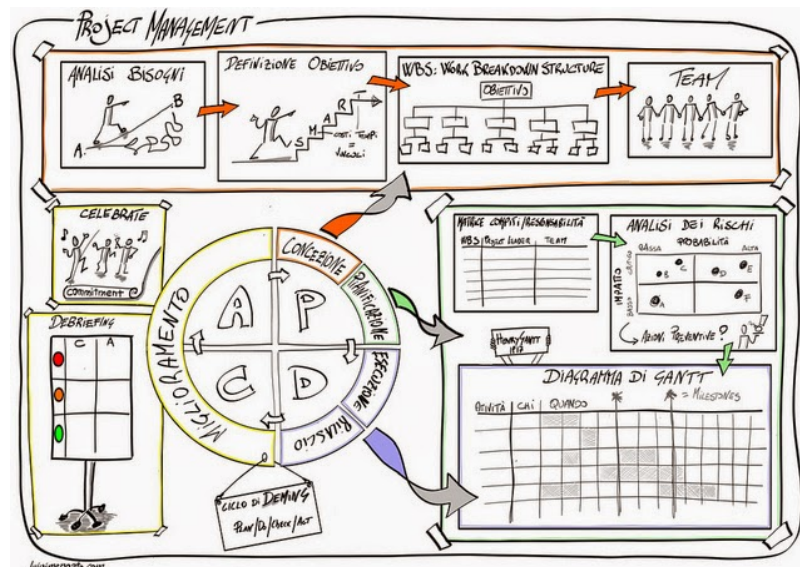 PROJECT MANAGEMENT
ANALISI BISOGNI
A.
B
DEFINIZIONE OBIETTIVO
S
M
A
R
T
COSTI TEMPI
=
VINCOLI
WBS: WORK BREAKDOWN STRUCTURE
OBIETTIVO
TEAM
CELEBRATE
commitment
DEBRIEFING
C A
CONCEZIONE
PIANIFICAZIONE
ESECUZIONE
RILASCIO
MIGLIORAMENTO
A P
C D
CICLO DI DEMING
PLAN/DO/CHECK/ACT
MATRICE COMPITI/RESPONSABILITÀ
WBS PROJECT LEADER TEAM
ANALISI DEI RISCHI
PROBABILITÀ
BASSA ALTA
IMPATTO
BASSO
A
B
C
D
E
F
AZIONI PREVENTIVE?
HENRY GANTT
1917
DIAGRAMMA DI GANTT
= MILESTONES
ATTIVITÀ CHI QUANDO